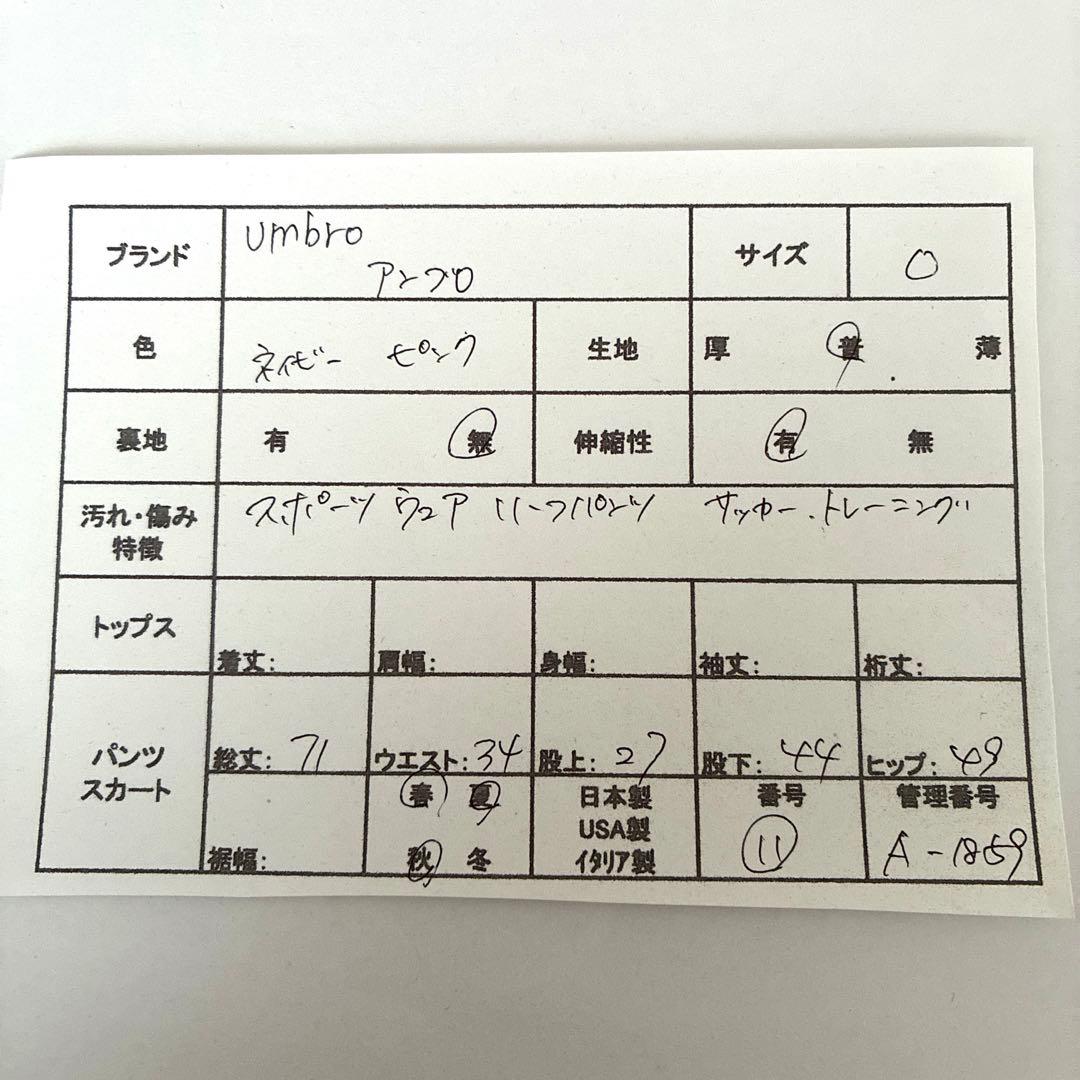 ブランド umbro サイズ O
アンブロ
色 ネイビー ピンク 生地 厚 普 薄
裏地 有 無 伸縮性 有 無
汚れ・傷み
特徴
スポーツウェア ハーフパンツ サッカー.トレーニング
トップス
着丈: 肩幅: 身幅: 袖丈: 裄丈:
パンツ
スカート
総丈: 71 ウエスト: 34 股上: 27 股下: 44 ヒップ: 49
裾幅:
春 夏
秋 冬
日本製
USA製
イタリア製
番号
11
管理番号
A-1859